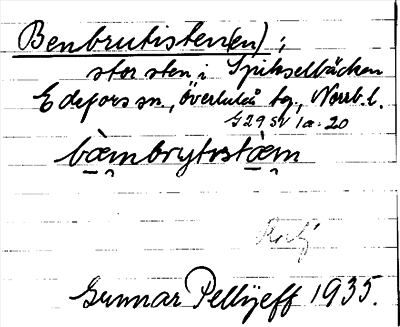 Benbrutisten(en);
stor sten i Spikselbäcken
Edefors sn., Överluleå tg., Norrb. l.
G 29 SV 1 a. 20
bæmbrytıstæm
Gunnar Pellijeff 1935.